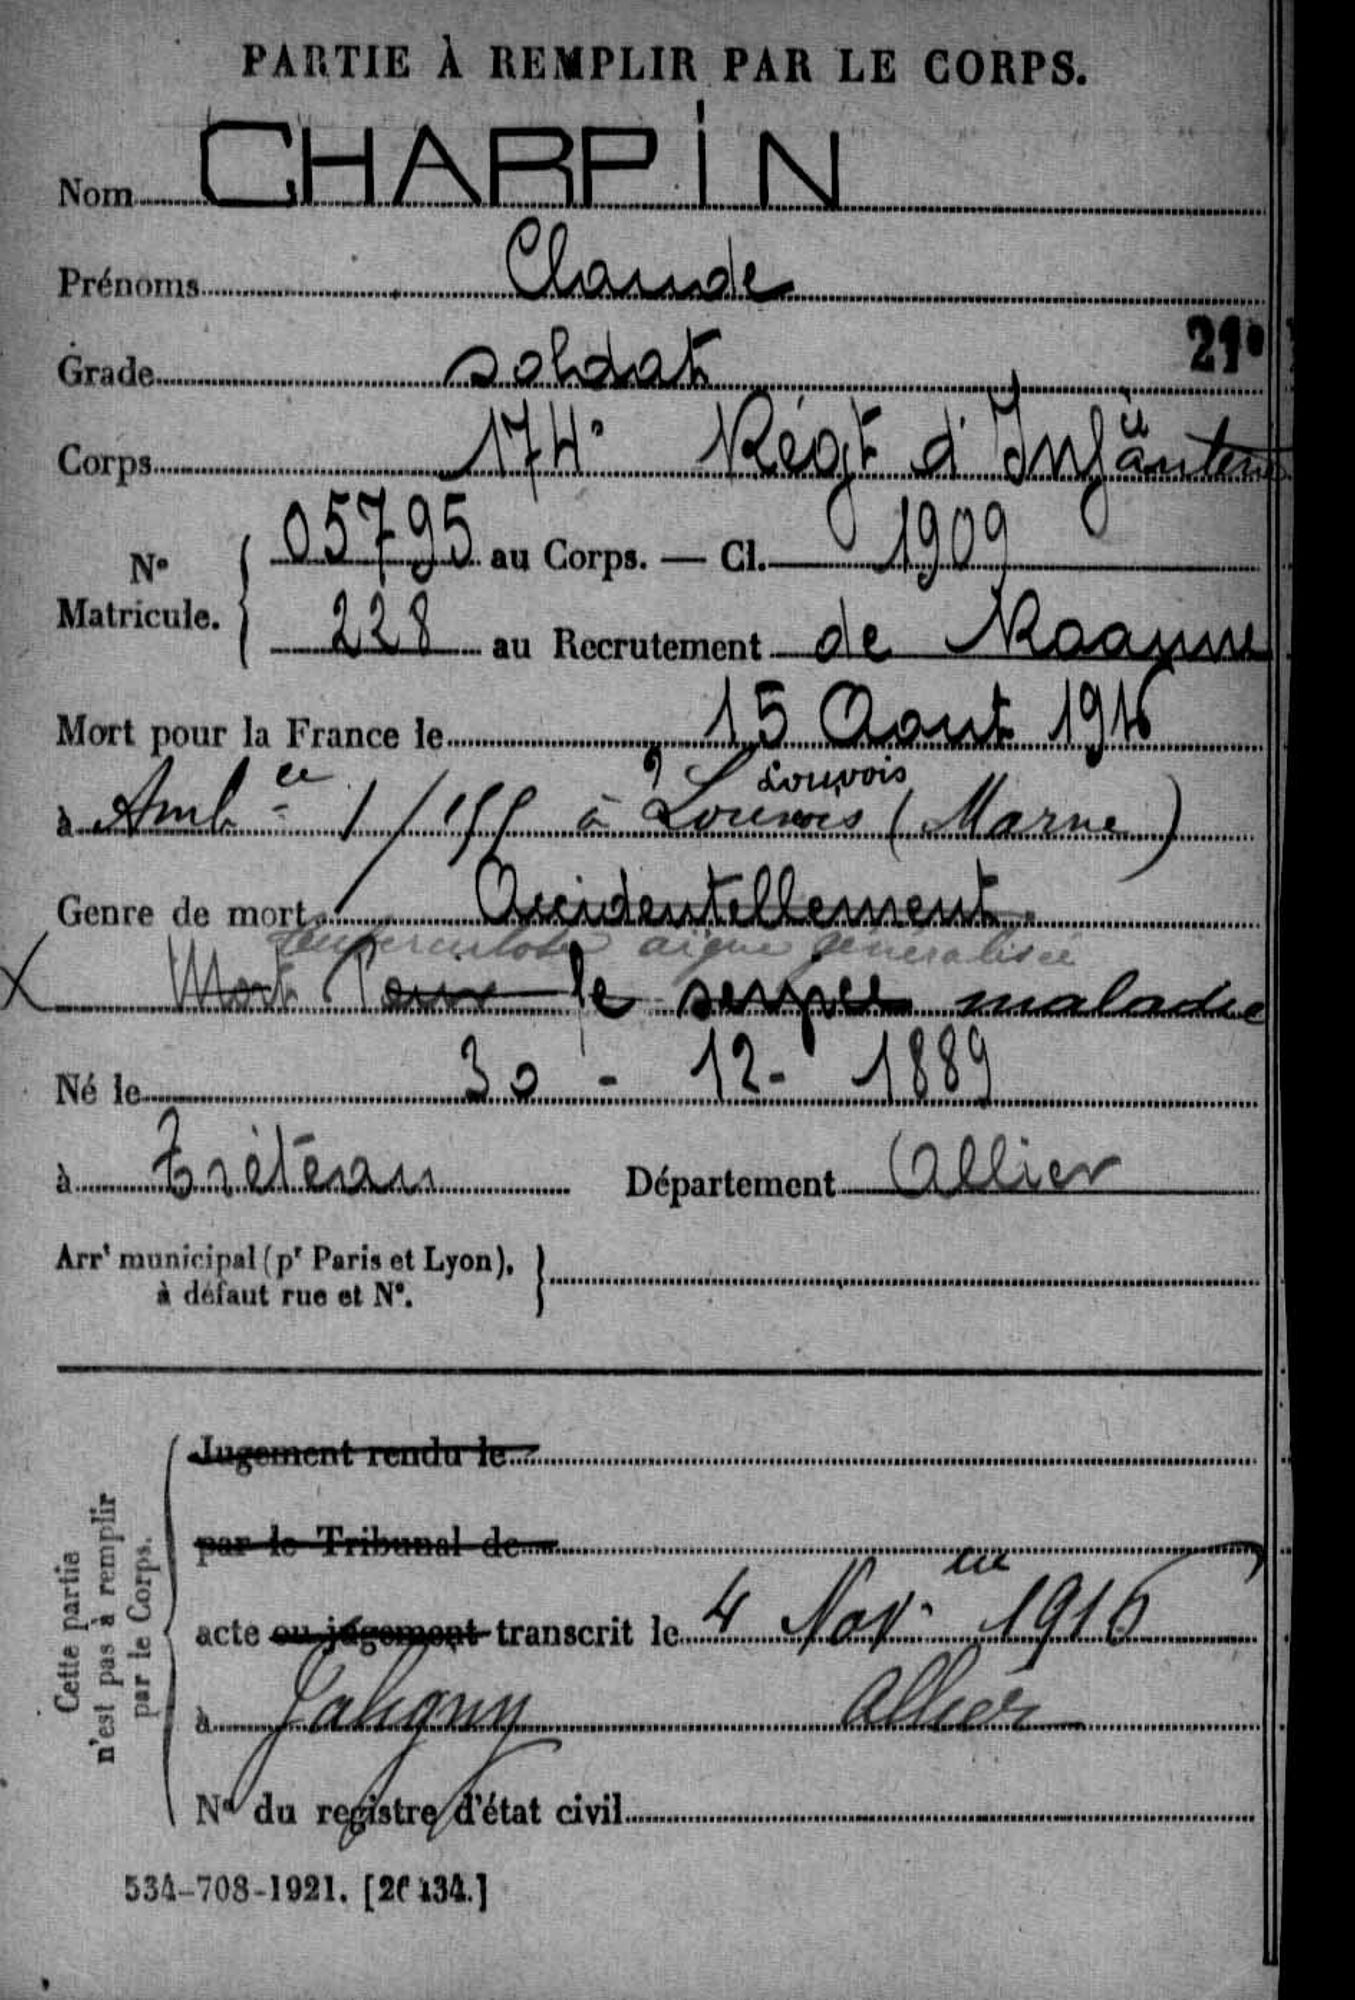 PARTIE À REMPLIR PAR LE CORPS.
Nom CHARPIN
Prénoms Claude
21e
Grade soldat
Corps 174e Régt d'Infanterie
N° Matricule. 05795 au Corps. — Cl. 1909
228 au Recrutement de Roanne
Mort pour la France le 15 Aout 1916
Louvois
à Ambce 1/155 à Louvois (Marne)
Genre de mort Accidentellement
aigue généralisée
Mort Pour le service maladie
Né le 30 - 12 - 1889
à Tréteau Département Allier
Arrt municipal (pr Paris et Lyon),
à défaut rue et N°.
Cette partie
n'est pas à remplir
par le Corps.
Jugement rendu le
par le Tribunal de
acte ou jugement transcrit le 4 Nov. 1916
à Jaligny Allier
N° du registre d'état civil
534-708-1921. [26434.]